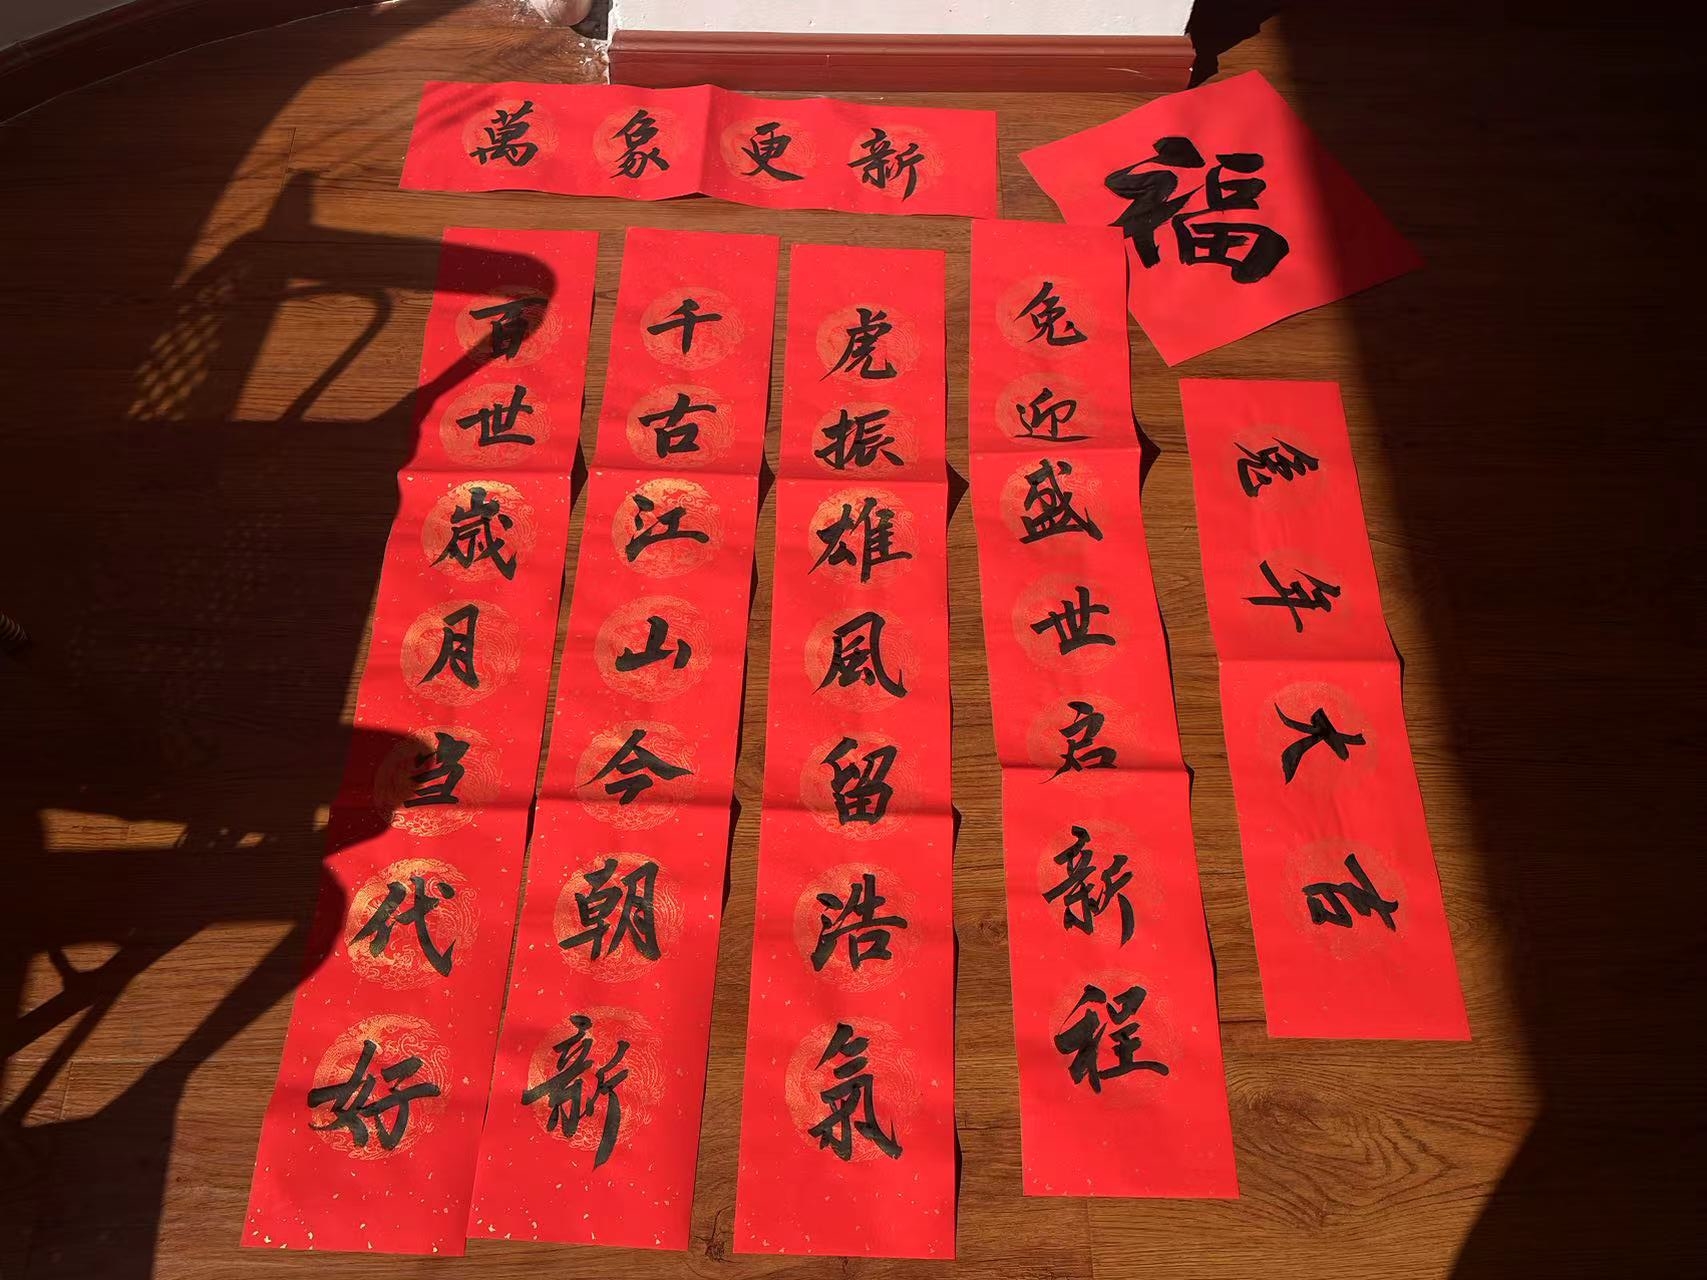 萬象更新
福
百世歲月当代好
千古江山今朝新
虎振雄風留浩氣
兔迎盛世启新程
兔年大吉